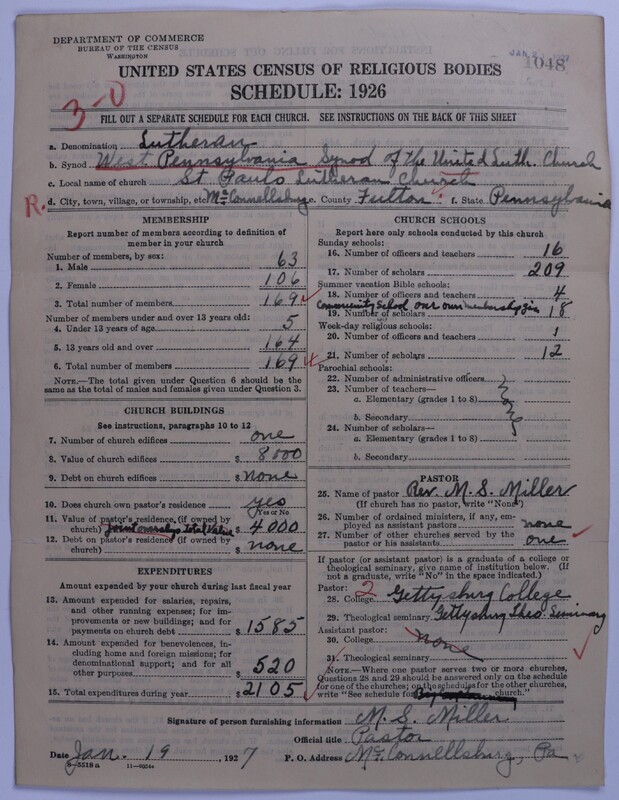 DEPARTMENT OF COMMERCE
BUREAU OF THE CENSUS
WASHINGTON
1048
UNITED STATES CENSUS OF RELIGIOUS BODIES
SCHEDULE: 1926
3-0
FILL OUT A SEPARATE SCHEDULE FOR EACH CHURCH. SEE INSTRUCTIONS ON THE BACK OF THIS SHEET
a. Denomination Lutheran
b. Synod West Pennsylvania Synod of the United Luth. Church
c. Local name of church St Pauls Lutheran Church
R. d. City, town, village, or township, etc McConnellsburg e. County Fulton f. State Pennsylvania
MEMBERSHIP
Report number of members according to definition of
member in your church
Number of members, by sex:
1. Male 63
2. Female 106
3. Total number of members 169
Number of members under and over 13 years old:
4. Under 13 years of age 5
5. 13 years old and over 164
6. Total number of members 169
NOTE.—The total given under Question 6 should be the
same as the total of males and females given under Question 3.
CHURCH BUILDINGS
See instructions, paragraphs 10 to 12
7. Number of church edifices one
8. Value of church edifices $ 8000
9. Debt on church edifices $ none
10. Does church own pastor's residence yes
(Yes or No)
11. Value of pastor's residence (if owned by
church) joint ownership Total Value $ 4000
12. Debt on pastor's residence (if owned by
church) $ none
EXPENDITURES
Amount expended by your church during last fiscal year
13. Amount expended for salaries, repairs,
and other running expenses; for im-
provements or new buildings; and for
payments on church debt $ 1585
14. Amount expended for benevolences, in-
cluding home and foreign missions; for
denominational support; and for all
other purposes $ 520
15. Total expenditures during year $ 2105
CHURCH SCHOOLS
Report here only schools conducted by this church
Sunday schools:
16. Number of officers and teachers 16
17. Number of scholars 209
Summer vacation Bible schools:
18. Number of officers and teachers 4
Community School our own membership
19. Number of scholars 18
Week-day religious schools:
20. Number of officers and teachers 1
21. Number of scholars 12
Parochial schools:
22. Number of administrative officers
23. Number of teachers—
a. Elementary (grades 1 to 8)
b. Secondary
24. Number of scholars—
a. Elementary (grades 1 to 8)
b. Secondary
PASTOR
25. Name of pastor Rev. M. S. Miller
(If church has no pastor, write "None")
26. Number of ordained ministers, if any, em-
ployed as assistant pastors none
27. Number of other churches served by the
pastor or his assistants one
If pastor (or assistant pastor) is a graduate of a college or
theological seminary, give name of institution below. (If
not a graduate, write "No" in the space indicated.)
Pastor: 2
28. College Gettysburg College
29. Theological seminary Gettysburg Theo. Seminary
Assistant pastor:
30. College none
31. Theological seminary
NOTE.—Where one pastor serves two or more churches,
Questions 28 and 29 should be answered only on the schedule
for one of the churches; on the schedules for the other churches,
write "See schedule for church."
Signature of person furnishing information M. S. Miller
Official title Pastor
Date Jan. 19, 1927 P. O. Address McConnellsburg, Pa
8-5218a 11-9954